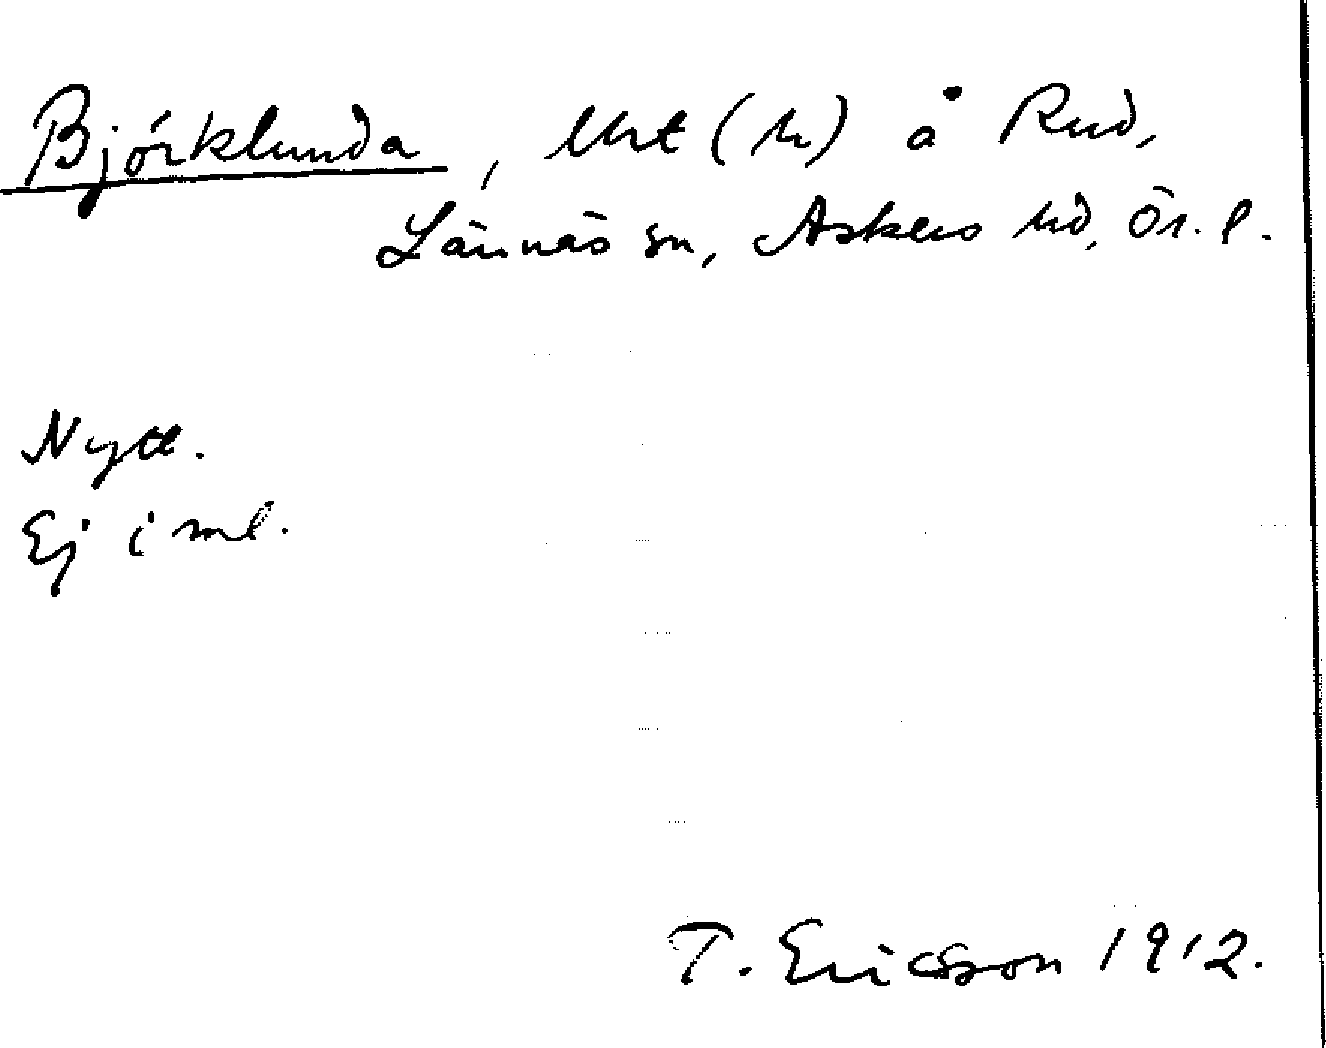 Björklunda, lht (h) å Rud,
Lännäs sn, Askers hd, Ör. l.
Nytt.
Ej i ml.
T. Ericsson 1912.